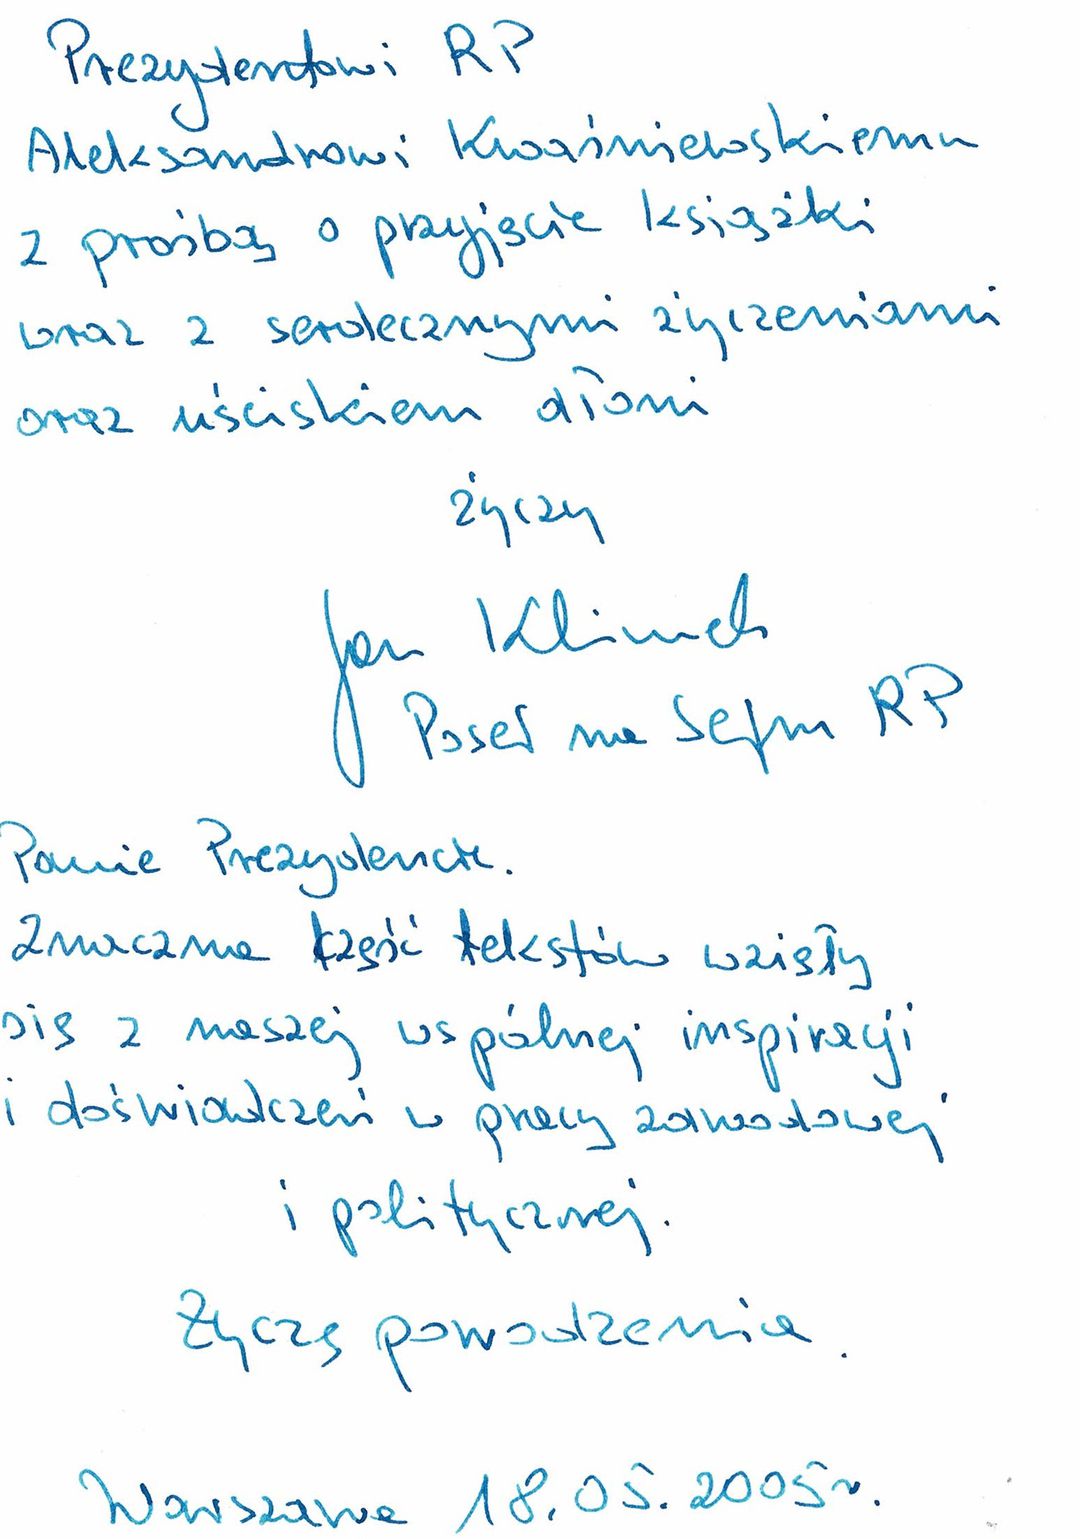 Prezydentowi RP
Aleksandrowi Kwaśniewskiemu
z prośbą o przyjęcie książki
wraz z serdecznymi życzeniami
oraz uściskiem dłoni
życzy
Jan Klimek
Poseł na Sejm RP
Panie Prezydencie.
Znaczna część tekstów wzięły
się z naszej wspólnej inspiracji
i doświadczeń w pracy zawodowej
i politycznej.
Życzę powodzenia.
Warszawa 18.05.2005r.